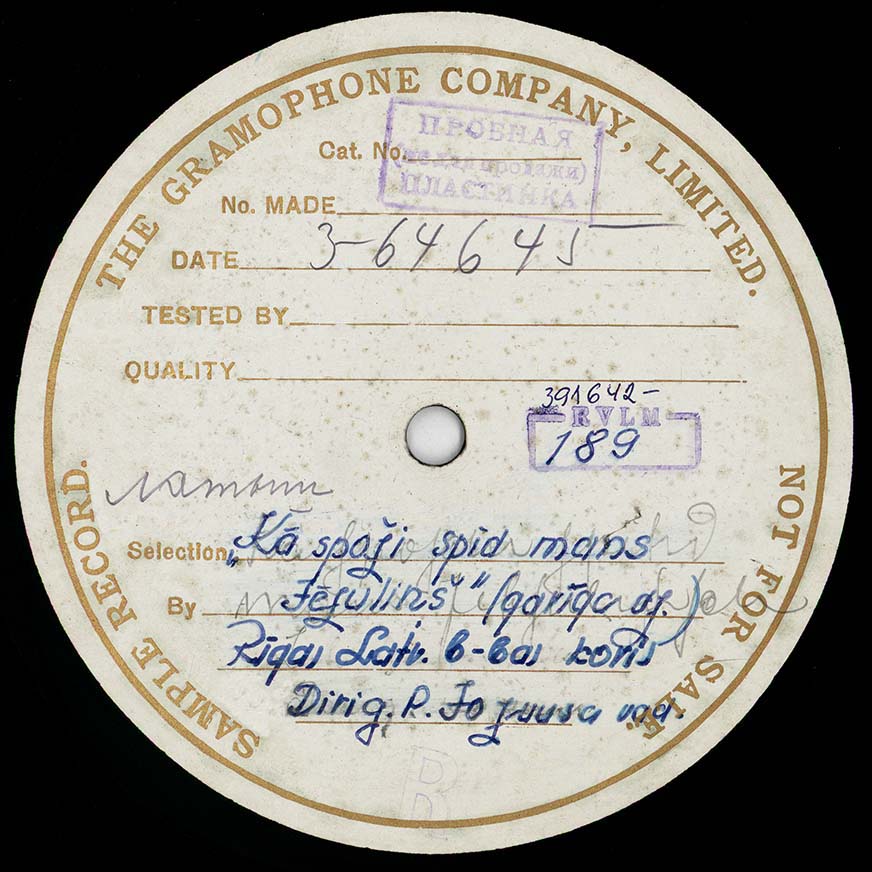 THE GRAMOPHONE COMPANY, LIMITED.
ПРОБНАЯ
Cat. No.
ПЛАСТИНКА
No. MADE
DATE 3-64645
TESTED BY
QUALITY
391642-
RVLM
189
Selection „Kā spoži spīd mans
By Jēzuliņš" (garīga dz.)
Rīgas Latv. b-bas koris
Dirig. P. Jozuusa vad.
SAMPLE RECORD.
NOT FOR SALE.